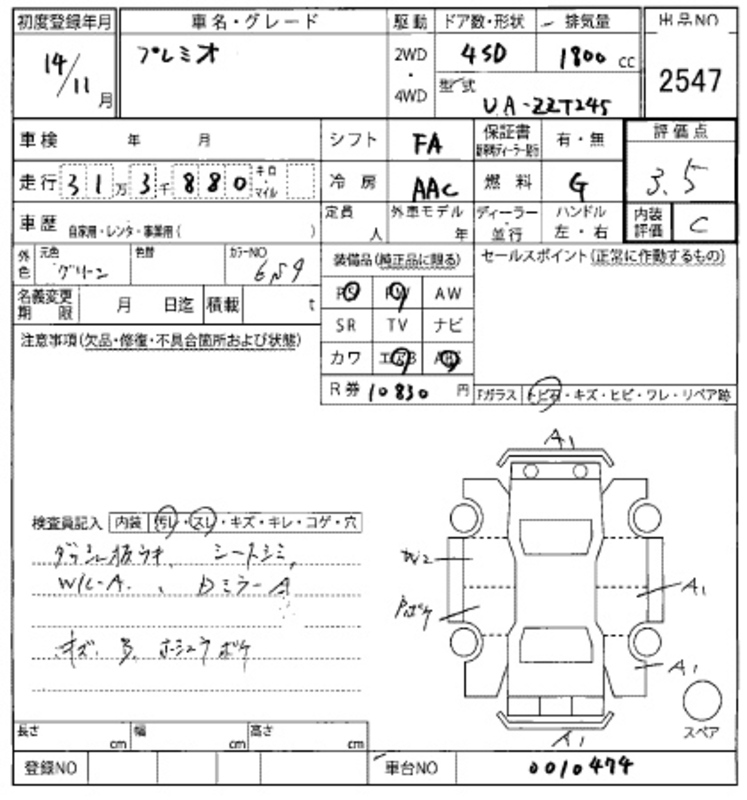 初度登録年月 車名・グレード 駆動 ドア数・形状 排気量 出品NO
14/11月 プレミオ 2WD・4WD 4SD 1800cc 2547
型式 UA-ZZT245
車検 年 月 シフト FA 保証書 有・無 評価点 3.5
走行 31万3千880 キロ・マイル 冷房 AAC 燃料 G
車歴 自家用・レンタ・事業用( ) 定員 人 外車モデル 年 ディーラー・並行 ハンドル 左・右 内装評価 C
外色 元色 グリーン 色替 カラーNO 6S9 装備品(純正品に限る) セールスポイント(正常に作動するもの)
PS PW AW
名義変更期限 月 日迄 積載 t SR TV ナビ
注意事項(欠品・修復・不具合箇所および状態)
カワ エアB ABS
R券 10830円 Fガラス トビ石・キズ・ヒビ・ワレ・リペア跡
A1
検査員記入 内装 汚レ・スレ・キズ・キレ・コゲ・穴
シートシミ、
W2
W/C-A. 、Dミラー A
A1
Pボケ
キズ、
ボケ
A1
スペア
A1
長さ cm 幅 cm 高さ cm
登録NO 車台NO 0010474